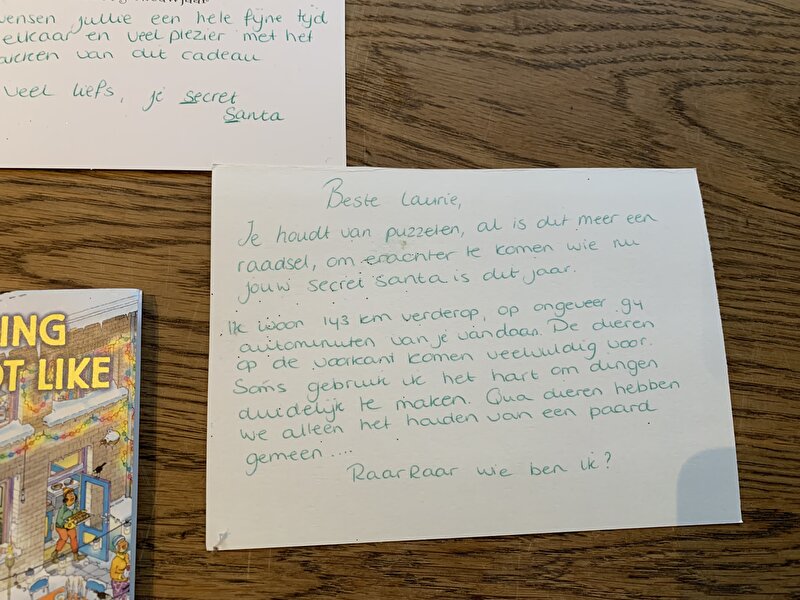 wensen jullie een hele fijne tijd
elkaar en veel plezier met het
van dit cadeau
veel liefs, je secret
Santa
Beste Laurie,
Je houdt van puzzelen, al is dit meer een
raadsel, om erachter te komen wie nu
jouw secret santa is dit jaar.
Ik woon 143 km verderop, op ongeveer 94
autominuten van je vandaan. De dieren
op de voorkant komen veelvuldig voor.
Soms gebruik ik het hart om dingen
duidelijk te maken. Qua dieren hebben
we alleen het houden van een paard
gemeen....
RaarRaar wie ben ik?
ING
OT LIKE